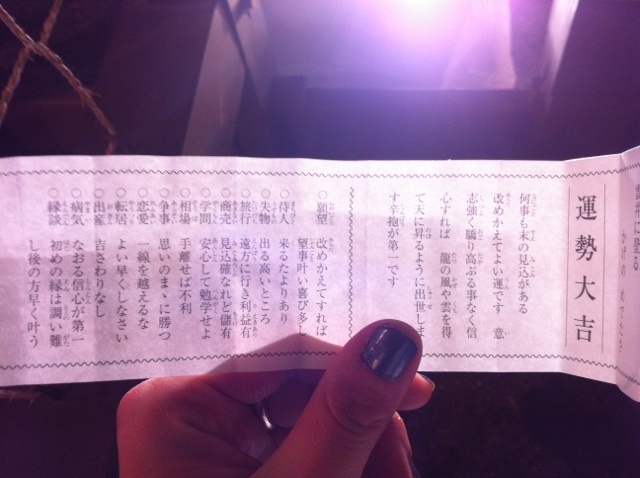 に登る
運勢大吉
何事も末の見込がある
改めかえてよい運です 意
志強く驕り高ぶる事なく信
心すれば 龍の風や雲を得
て天に昇るように出世しま
す辛抱が第一です
○願望 改めかえてすれば
望事叶い喜び多し
○待人 来るたよりあり
○失物 出る高いところ
○旅行 遠方に行き利益有
○商売 見込確なれど儲有
○学問 安心して勉学せよ
○相場 手離せば不利
○争事 思いのまゝに勝つ
○恋愛 一線を越えるな
○転居 よい早くしなさい
○出産 吉さわりなし
○病気 なおる信心が第一
○縁談 初めの縁は調い難
し後の方早く叶う